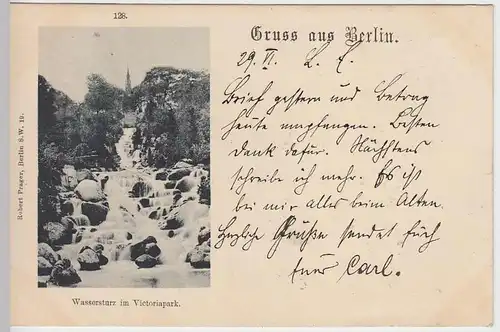 128.
Gruss aus Berlin.
29. VI. L. E.
Brief gestern und Betrag
heute empfangen. Besten
Dank dafür. Nächstens
schreibe ich mehr. Es ist
bei mir alles beim Alten.
Herzliche Grüße sendet Euch
Euer Carl.
Robert Prager, Berlin S.W. 19.
Wassersturz im Victoriapark.